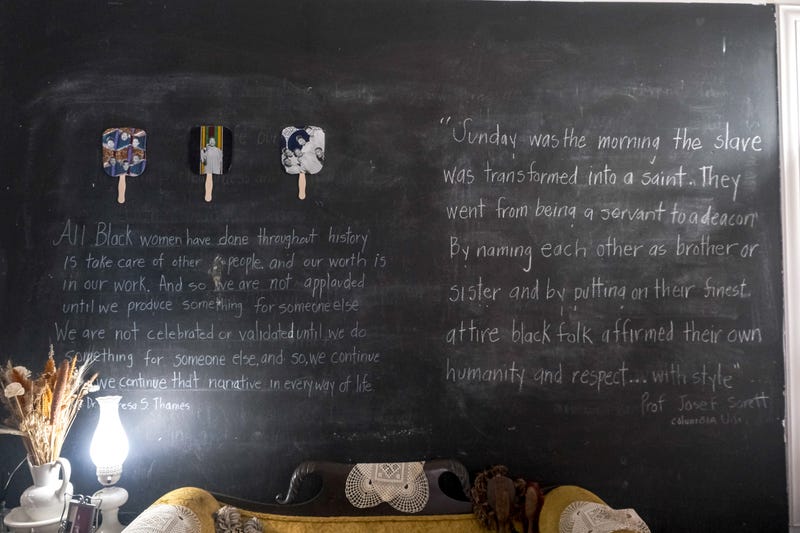 All Black women have done throughout history
is take care of other people. and our worth is
in our work. And so we are not applauded
until we produce something for someone else
We are not celebrated or validated until we do
something for someone else, and so, we continue
we continue that narrative in every way of life.
S. Thames
"Sunday was the morning the slave
was transformed into a saint. They
went from being a servant to a deacon
By naming each other as brother or
sister and by putting on their finest
attire black folk affirmed their own
humanity and respect... with style"
Prof Josef Sorett
Columbia Univ.